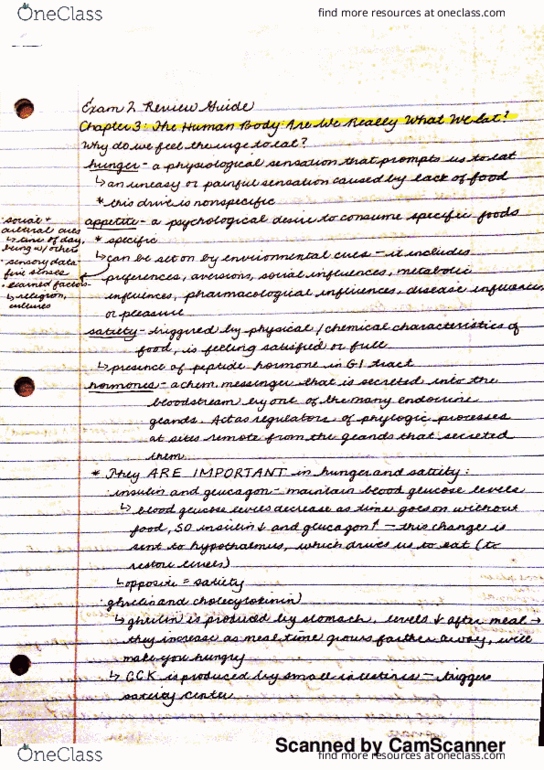 OneClass
find more resources at oneclass.com
Exam 2 Review Guide
Chapter 3: The Human Body: Are We Really What We Eat?
Why do we feel the urge to eat?
hunger - a physiological sensation that prompts us to eat
↳ an uneasy or painful sensation caused by lack of food
* this drive is nonspecific
appetite - a psychological desire to consume specific foods
* specific
↳ can be set on by environmental cues - it includes
preferences, aversions, social influences, metabolic
influences, pharmacological influences, disease influences,
or pleasure
· social +
cultural cues
↳ time of day,
being w/ others
· sensory data
five senses
· learned factors
↳ religion,
cultures
satiety - triggered by physical/chemical characteristics of
food, is feeling satisfied or full
↳ presence of peptide hormone in GI tract
hormones - a chem. messenger that is secreted into the
bloodstream by one of the many endocrine
glands. Act as regulators of phylogic processes
at sites remote from the glands that secreted
them.
* They ARE IMPORTANT in hunger and satiety:
· insulin and glucagon - maintain blood glucose levels
↳ blood glucose levels decrease as time goes on without
food, SO insulin ↓ and glucagon ↑ - this change is
sent to hypothalmus, which drives us to eat (to
restore levels)
↳ opposite = satiety
· ghrelin and cholecytokinin
↳ ghrelin is produced by stomach, levels ↓ after meal →
they increase as meal time grows farther away, will
make you hungry
↳ CCK is produced by small intestines - triggers
satiety center
Scanned by CamScanner
OneClass
find more resources at oneclass.com